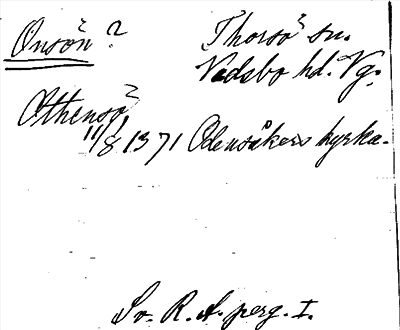 Onsön? Thorsö sn.
Vadsbo hd. Vg.
Othensö
11/8 1371 Odensåkers kyrka.
Sv. R. A. perg. I.